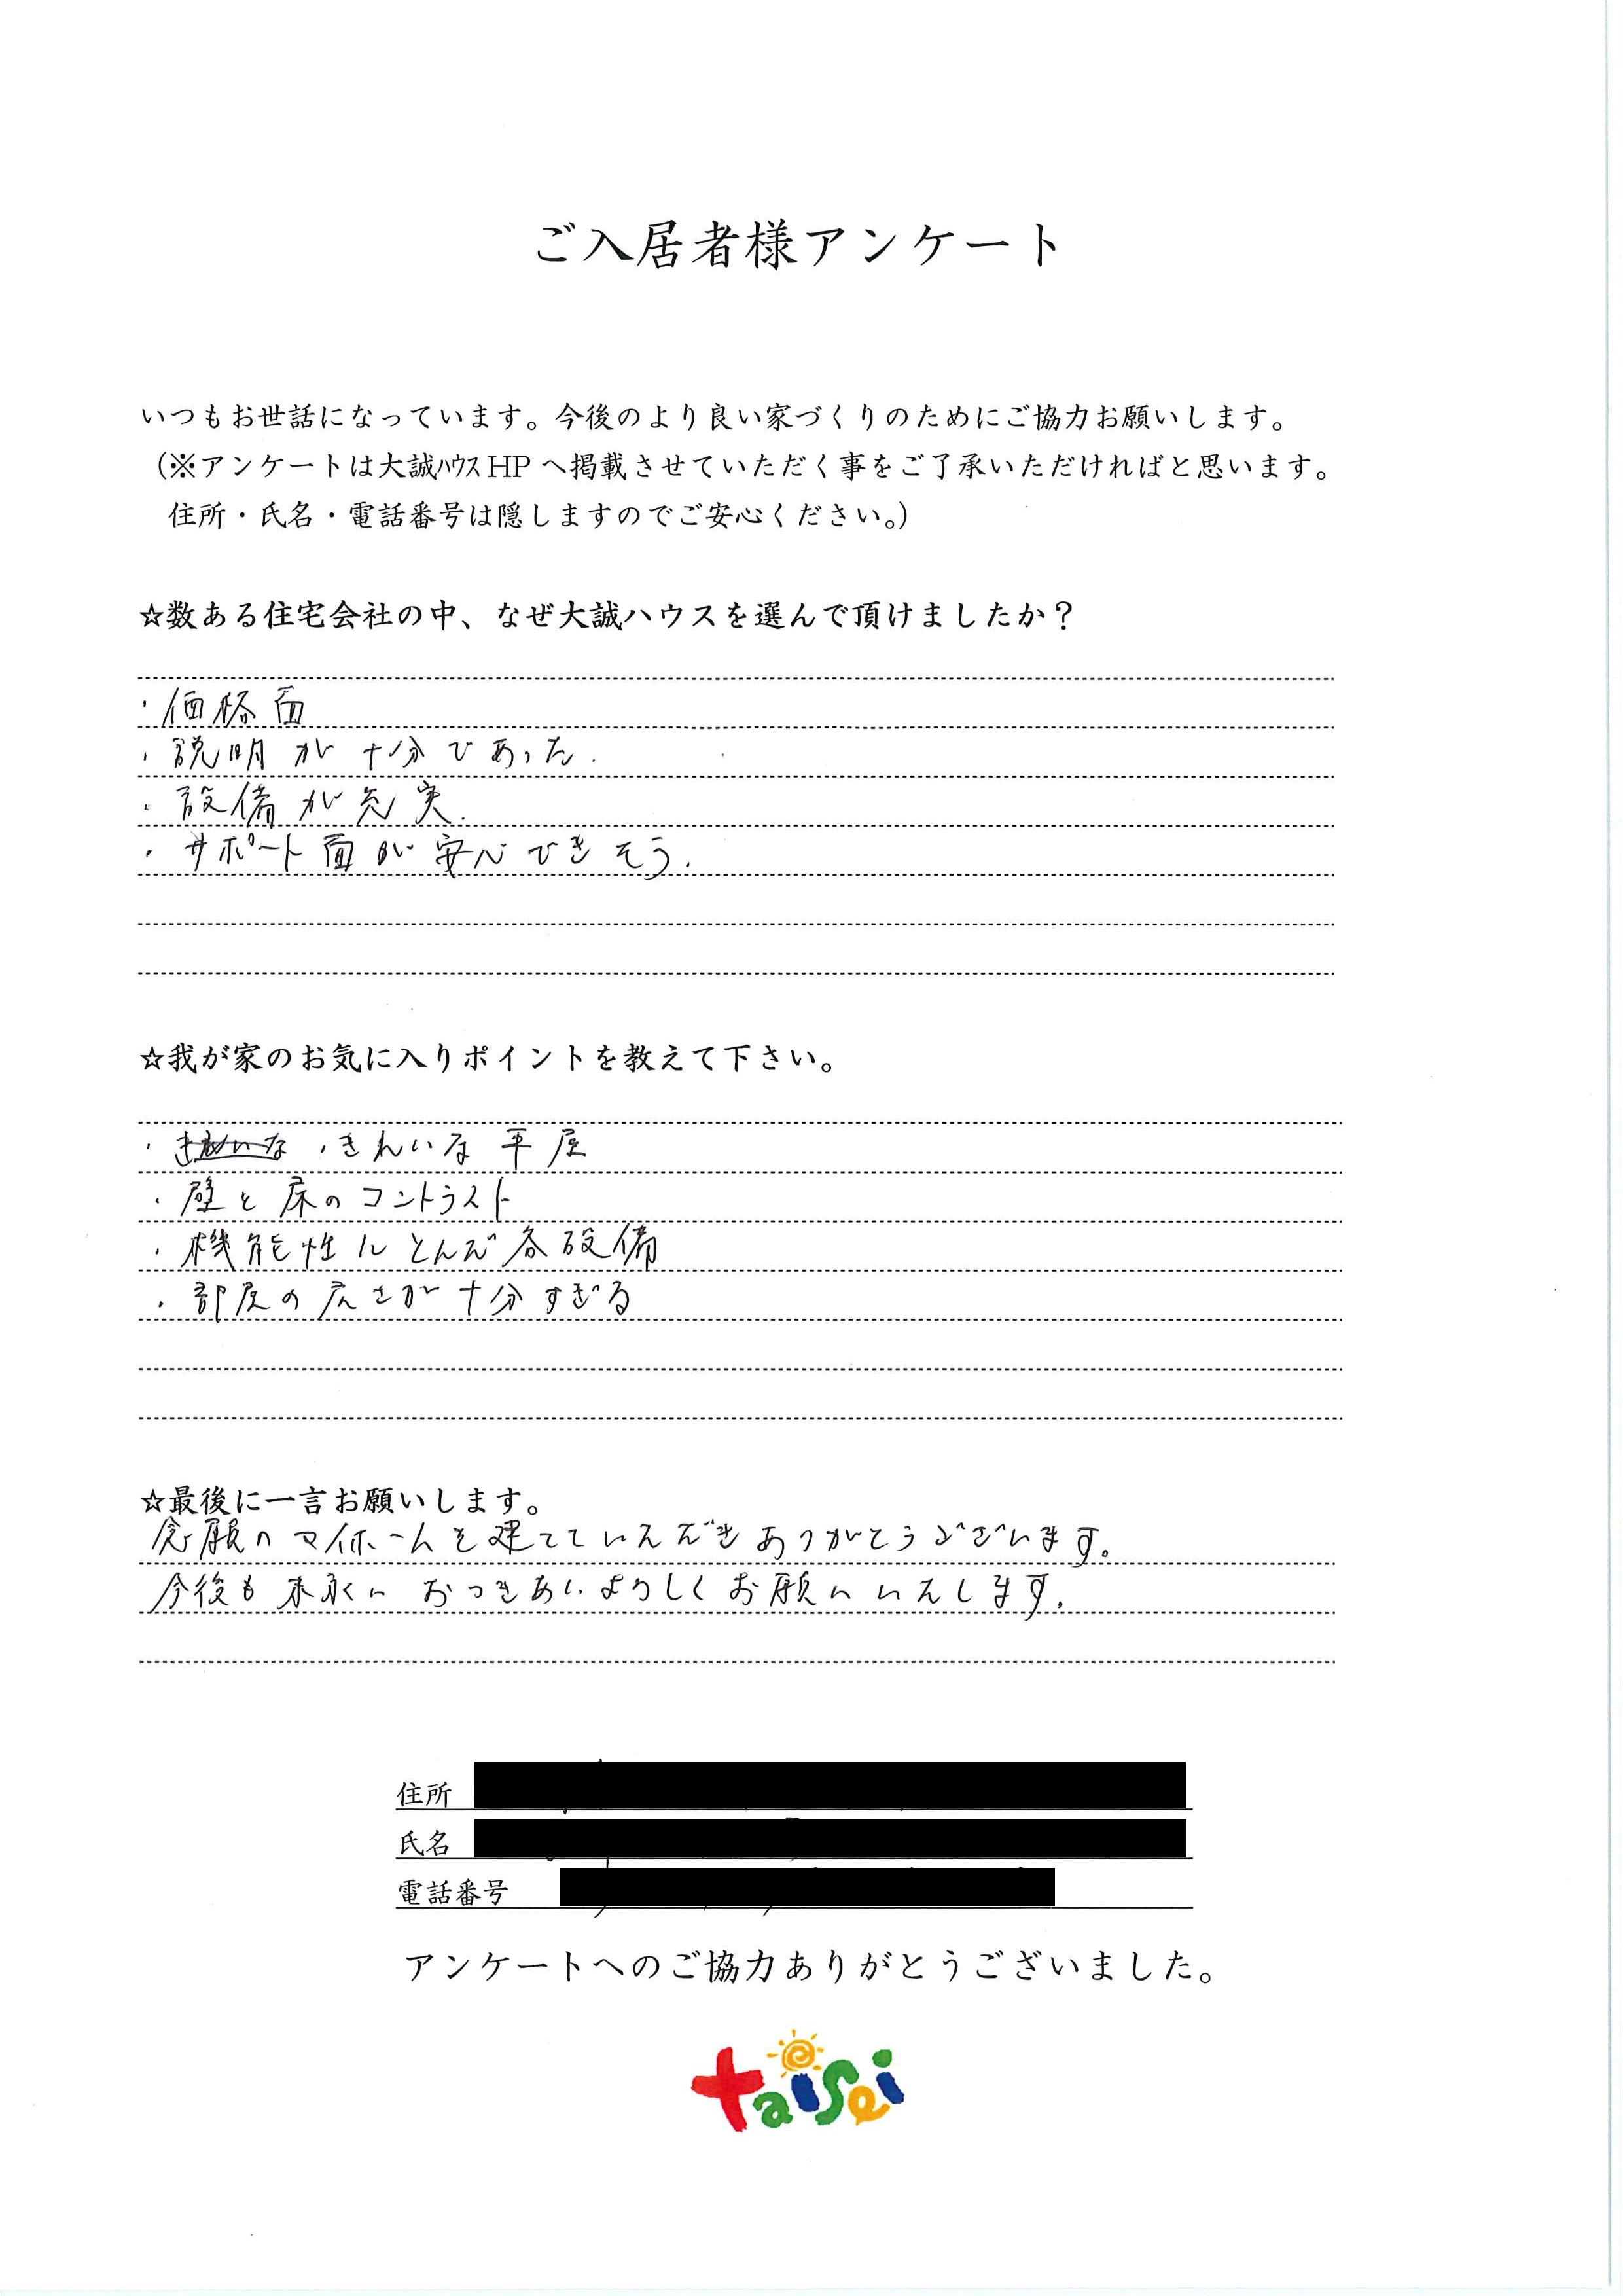 ご入居者様アンケート
いつもお世話になっています。今後のより良い家づくりのためにご協力お願いします。
（※アンケートは大誠ﾊｳｽHPへ掲載させていただく事をご了承いただければと思います。
住所・氏名・電話番号は隠しますのでご安心ください。）
☆数ある住宅会社の中、なぜ大誠ハウスを選んで頂けましたか？
・価格面
・説明が十分であった.
・設備が充実.
・サポート面が安心できそう.
☆我が家のお気に入りポイントを教えて下さい。
・きれいな ・きれいな平屋
・壁と床のコントラスト
・機能性にとんだ各設備
・部屋の広さが十分すぎる
☆最後に一言お願いします。
念願のマイホームを建てていただきありがとうございます。
今後も末永い おつきあいよろしくお願いいたします.
住所
氏名
電話番号
アンケートへのご協力ありがとうございました。
taisei